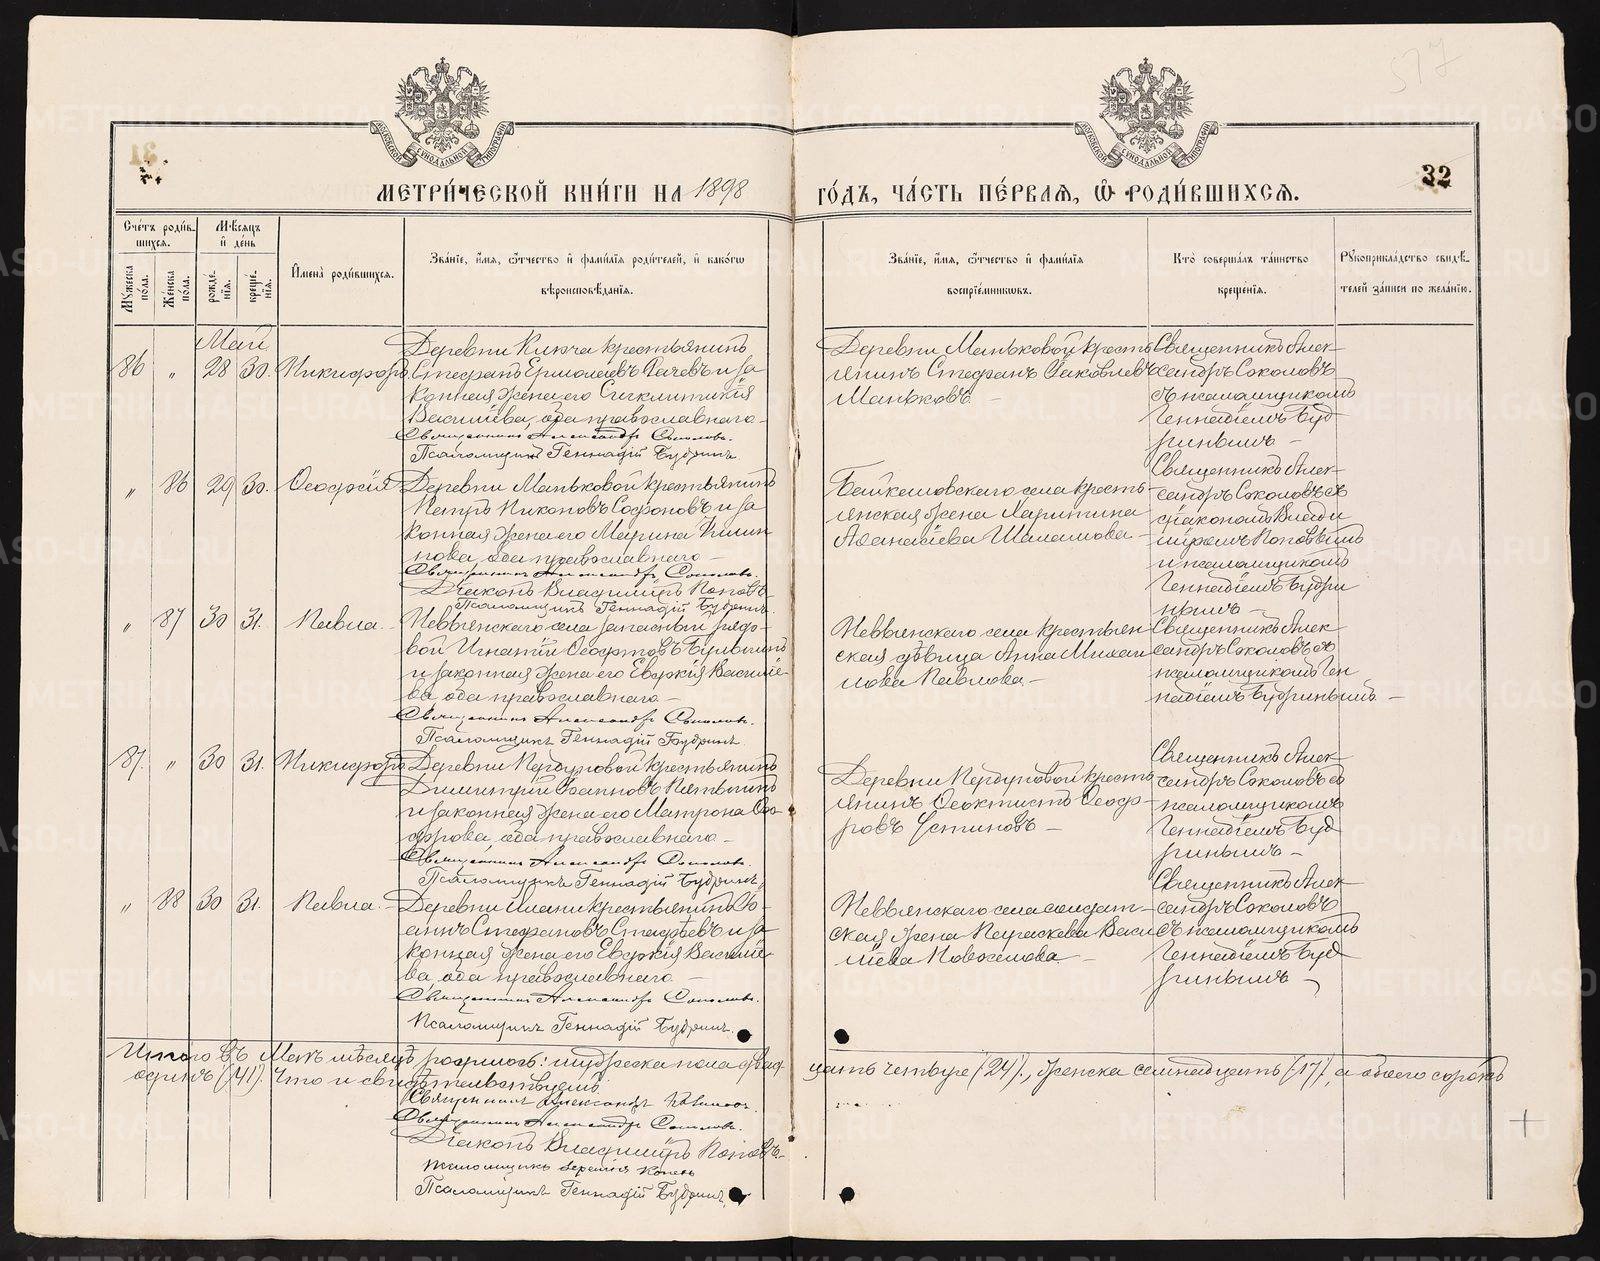 31
32
МОСКОВСКОЙ СѴНОДАЛЬНОЙ ТИПОГРАФІИ
МОСКОВСКОЙ СѴНОДАЛЬНОЙ ТИПОГРАФІИ
МЕТРИ́ЧЕСКОЙ КНИ́ГИ НА 1898 ГО́ДЪ, ЧА́СТЬ ПЕ́РВАѦ, Ѽ РОДИ́ВШИХСѦ.
Сче́тъ роди́в-
шихся.
Мѣсяцъ
и де́нь
Му́жеска по́ла.
Же́нска по́ла.
рожде́-
нія.
креще́-
нія.
Имена̀ роди́вшихся.
Зва́ніе, и́мя, ѻ҆́тчество и фами́лія роди́телей, и како́гѡ
вѣроисповѣ́данія.
Зва́ніе, и́мя, ѻ҆́тчество и фами́лія
воспріе́мниковъ.
Кто̀ соверша́лъ та́инство
креще́нія.
Рꙋкоприкла́дство свидѣ́-
телей за́писи по жела́нію.
Май
86 „ 28 30. Никифоръ.
Деревни Ключа крестьянинъ
Стефанъ Ермолаевъ Рачевъ и за
конная жена его Сигклитикія
Васильева, оба православнаго
Священникъ Александръ Соколовъ.
Псаломщикъ Геннадій Будринъ.
Деревни Маньковой кресть
янинъ Стефанъ Іаковлевъ
Маньковъ. –
Священникъ Алек-
сандръ Соколовъ
съ псаломщикомъ
Геннадіемъ Буд
ринымъ –
„ 86 29 30. Ѳеофсія
Деревни Маньковой крестьянинъ
Петръ Никоновъ Софоновъ и за
конная жена его Марина Филип
пова, оба православнаго –
Священникъ Александръ Соколовъ.
Діаконъ Владиміръ Поповъ
Псаломщикъ Геннадій Будринъ.
села кресть-
янская жена Харитина
Аѳанасіева Шаламова –
Священникъ Алек-
сандръ Соколовъ съ
діакономъ Влади
міромъ Поповымъ
и псаломщикомъ
Геннадіемъ Будри
нымъ –
„ 87 30 31. Павла. –
Невьянскаго села запасный рядо-
вой Игнатій Ѳеофтовъ
и законная жена его Евдокія Василіе-
ва, оба православнаго –
Священникъ Александръ Соколовъ.
Псаломщикъ Геннадій Будринъ
Невьянскаго села крестьян
ская дѣвица Анна Михаи
лова Павлова. –
Священникъ Алек
сандръ Соколовъ съ
псаломщикомъ Ген
надіемъ Будринымъ –
87. „ 30 31. Никифоръ
Деревни Першуновой крестьянинъ
Димитрій Іоанновъ
и законная жена его Матрона Ѳео-
дорова, оба православнаго –
Священникъ Александръ Соколовъ.
Псаломщикъ Геннадій Будринъ
Деревни Першуновой кресть
янинъ Ѳеоктистъ Ѳеодо-
ровъ Устиновъ –
Священникъ Алек-
сандръ Соколовъ съ
псаломщикомъ
Геннадіемъ Буд
ринымъ –
„ 88 30 31. Павла. –
Деревни крестьянинъ Іо-
аннъ Стефановъ и за
конная жена его Евдокія Василіе-
ва, оба православнаго –
Священникъ Александръ Соколовъ.
Псаломщикъ Геннадій Будринъ.
Невьянскаго села солдат-
ская жена Параскева Васи
ліева Новоселова –
Священникъ Алек-
сандръ Соколовъ
съ псаломщикомъ
Геннадіемъ Буд
ринымъ –
Итого въ Маѣ мѣсяцѣ родилось: мужеска пола двад цать четыре (24), женска семнадцать (17), а обоего сорокъ
одинъ (41). Что и свидѣтельствуемъ:
Священникъ Александръ
Священникъ Александръ Соколовъ.
Діаконъ Владиміръ Поповъ
Псаломщикъ
Псаломщикъ Геннадій Будринъ
METRIKI.GASO-URAL.RU